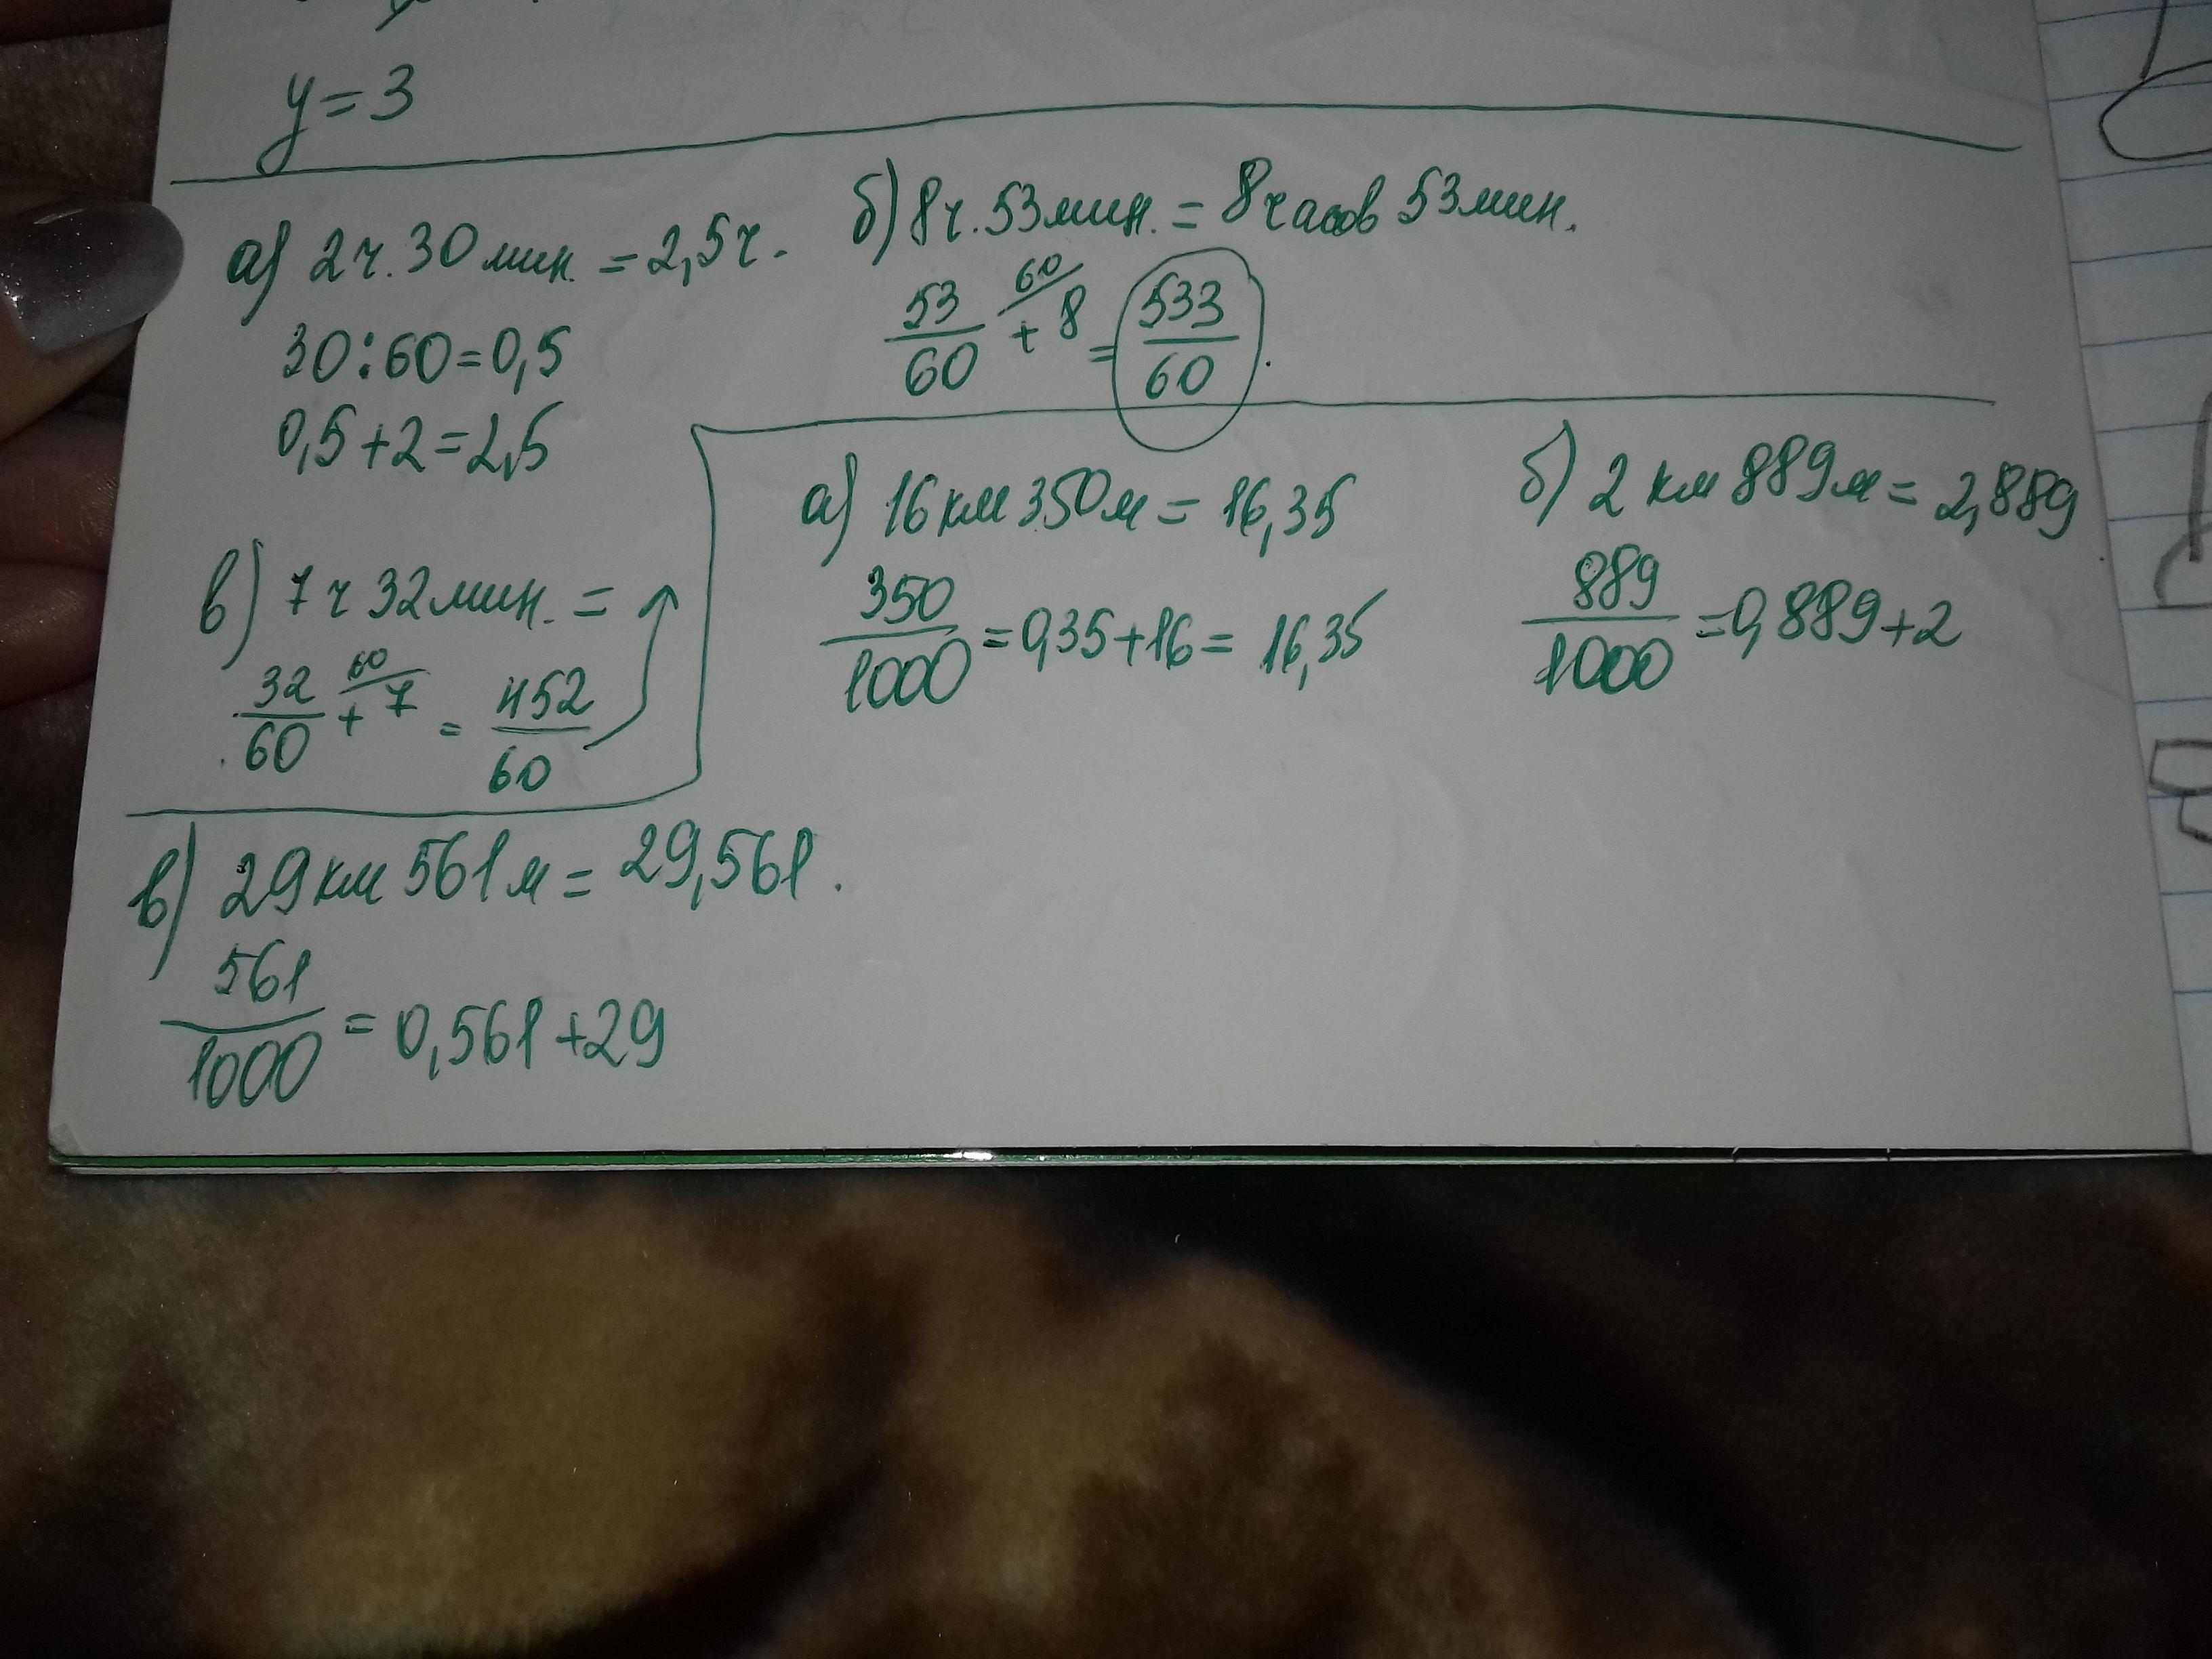 y = 3
а) 2 ч. 30 мин. = 2,5 ч.
30 : 60 = 0,5
0,5 + 2 = 2,5
б) 8 ч. 53 мин. = 8 часов 53 мин.
53/60 + 8 /60 = 533/60.
в) 7 ч 32 мин. =
32/60 + 7 /60 = 452/60
а) 16 км 350 м = 16,35
350/1000 = 0,35 + 16 = 16,35
б) 2 км 889 м = 2,889
889/1000 = 0,889 + 2
в) 29 км 561 м = 29,561.
561/1000 = 0,561 + 29